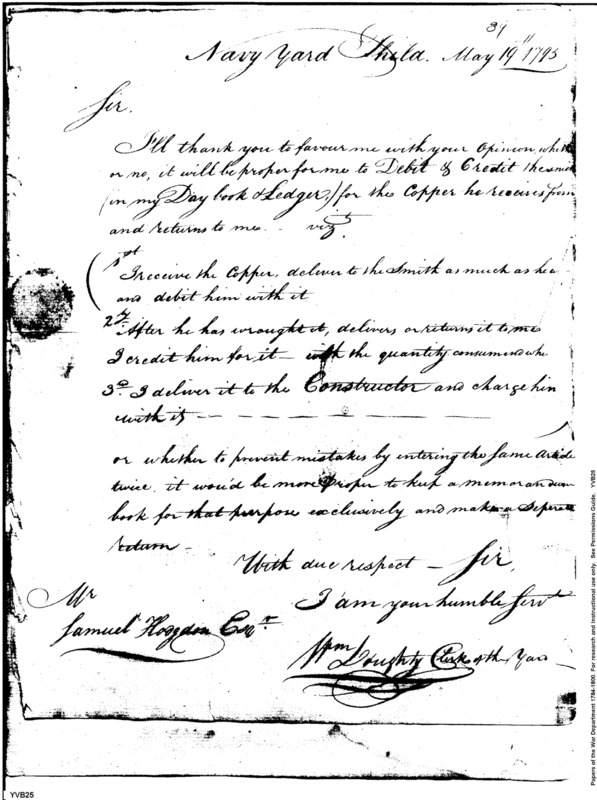 39
Navy Yard Philda. May 19th 1795
Sir.
I'll thank you to favour me with your Opinion, wheth
or no, it will be proper for me to Debit & Credit the smith
(in my Day book & Ledger,) for the Copper he receives from
and returns to me. vizt.
1st
I receive the Copper, deliver to the Smith as much as he
and debit him with it
2d. After he has wrought it, delivers or returns it to me
I credit him for it – with the quantity consumed whe
3d. I deliver it to the Constructor and charge him
with it
or whether to prevent mistakes by entering the Same Article
twice, it wou'd be more proper to keep a memorandum
book for that purpose exclusively and make a Seperate
return –
With due respect – Sir,
I am your humble Servt
Mr
Samuel Hodgdon Esqr.
Wm Doughty Clerk of the Yard
Papers of the War Department 1784-1800. For research and instructional use only. See Permissions Guide. YVB25
YVB25